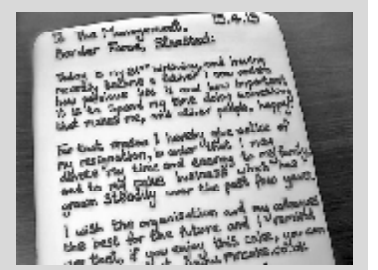 15.4.13
To the Management,
Border Force, Stansted:
Today is my 31st birthday, and having
recently become a father I now realise
how precious life is and how important
it is to spend my time doing something
that makes me, and other people, happy.
For that reason I hereby give notice of
my resignation, in order that I may
devote my time and energy to my family
and to my cakes business which has
grown steadily over the past few years.
I wish the organisation and my colleagues
the best for the future, and I remind
you that, if you enjoy this cake, you can